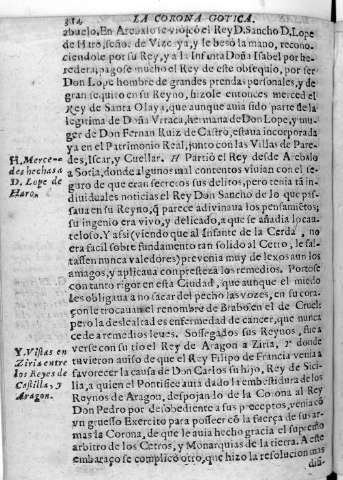 314 LA CORONA GOTICA.
abuelo. En Arebalo se viò con el Rey D. Sancho D. Lope
de Haro, señor de Vizcaya, y le besò la mano, recono-
ciendole por su Rey, y a la Infanta Doña Isabel por he-
redera; pagose mucho el Rey de este obsequio, por ser
Don Lope hombre de grandes prendas personales, y de
gran sequito en su Reyno, hizole entonces merced el
Rey de Santa Olaya, que aunque auia sido parte de la
legitima de Doña Vrraca, hermana de Don Lope, y mu-
ger de Don Fernan Ruiz de Castro, estaua incorporada
ya en el Patrimonio Real, junto con las Villas de Pare-
des, Iscar, y Cuellar. H Partiò el Rey desde Arebalo
H. Merce-
des hechas a
D. Lope de
Haro.
a Soria, donde algunos mal contentos vivian con el se-
guro de que eran secretos sus delitos; pero tenia tā in-
diuiduales noticias el Rey Don Sancho de lo que pas-
saua en su Reyno, q̄ parece adivinaua los pensamiētos;
su ingenio era vivo, y delicado, a que se añadia lo cau-
teloso. Y assi (viendo que al Infante de la Cerda, no
era facil sobre fundamento tan solido al Cetro, le fal-
tassen nunca valedores) prevenia muy de lexos aun los
amagos, y aplicaua con presteza los remedios. Portose
con tanto rigor en esta Ciudad, que aunque el miedo
les obligaua a no sacar del pecho las vozes, en su cora-
çon le trocauan el renombre de Brabo en el de Cruel;
pero la deslealtad es enfermedad de cancer, que nunca
cede a remedios leues. Sossegados sus Reynos, fue a
verse con su tio el Rey de Aragon a Ziria, Y donde
Y. Vistas en
Ziria entre
los Reyes de
Castilla, y
Aragon.
tuvieron auiso de que el Rey Filipo de Francia venia a
favorecer la causa de Don Carlos su hijo, Rey de Sici-
lia, a quien el Pontifice auia dado la embestidura de los
Reynos de Aragon, despojando de la Corona al Rey
Don Pedro por desobediente a sus preceptos, venia cō
vn gruesso Exercito para posseer cō la fuerça de sus ar-
mas la Corona, de que le auia hecho gracia el supremo
arbitro de los Cetros, y Monarquias de la tierra. A este
embaraço se complicò otro, que hizo la resolucion mas